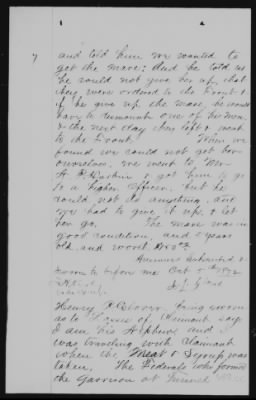 7
and told him we wanted to
get the mare; And he told us
he could not give her up, that
they were ordered to the Front &
if he give up the mare, he would
have to dismount one of his men,
& the next day they left & went
to the Front. When we
found we could not get her
ourselves, we went to Mr
& got him to go
to a higher officer, but he
could not do anything, and
we had to give it up, & let
her go. The mare was in
good condition, and 8 years
old, and worth
Answers Subscribed &
Sworn to before me Oct 5th 1872
Henry being sworn
as to of Claimant says
I am his Nephew, and I
was traveling with Claimant
when the Meat & Syrup was
taken. The Federals who formed
the Garrison at